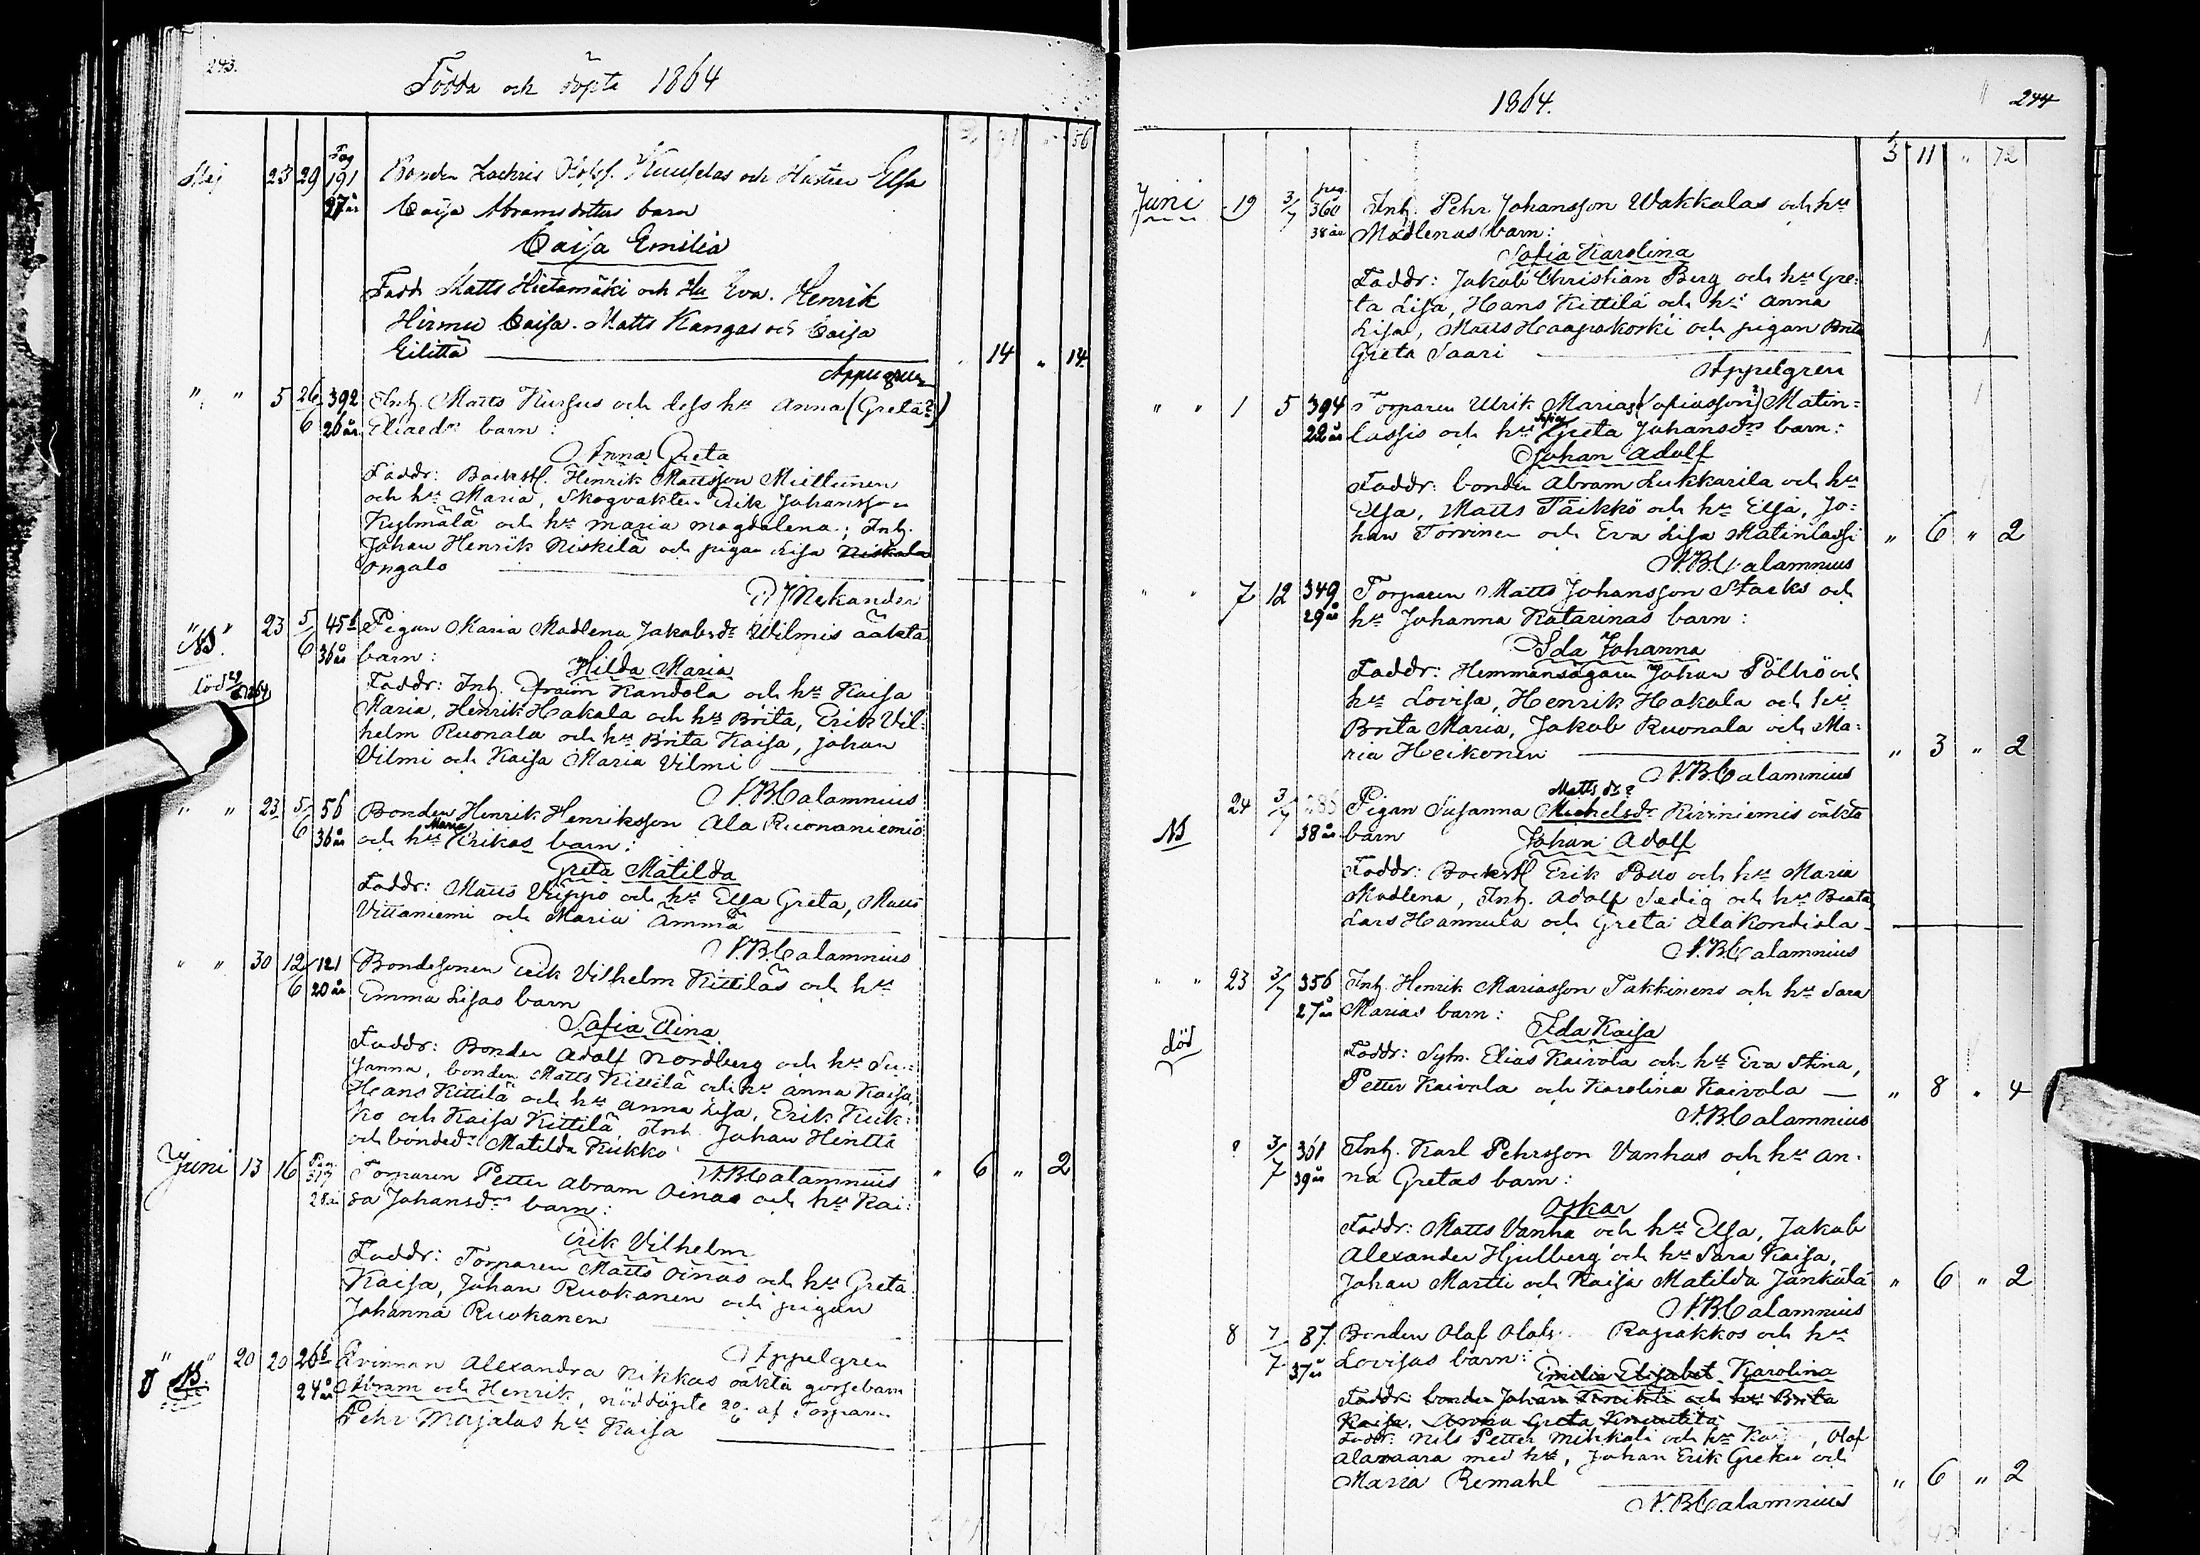 243.
Födda och döpta 1864
56
Maj 23 29 Pag 191 Bonden Zachris Kuuselas och Hustru Elsa
27 år Caisa Abrams dotters barn
Caisa Emilia
Fadd. Matts Hietamäki och Hu Eva. Henrik
Hirmu Caisa. Matts Kangas och Caisa
14 " 14
Appelgren
" " 5 26/6 392 Inh. Matts Kursus och dess hu Anna (Greta?)
26 år Eliaedr barn:
Anna Greta
Faddr: Backstl. Henrik Mattsson Miettunen
och hu Maria, Skogvakten Erik Johansson
Kylmälä och hu Maria Magdalena; Inh.
Johan Henrik Niskilä och pigan Lisa Niskala
Ongalo
" " 23 5/6 456 Pigan Maria Madlena Jakobsdr Wilmis oäkta
N 36 år barn:
Hilda Maria
död 29/6 1864
Faddr: Inh. Kandola och hu Kaisa
Maria, Henrik Hakala och hu Brita, Erik Vil-
helm Ruonala och hu Brita Kaisa, Johan
Vilmi och Kaisa Maria Vilmi
N.B.Calamnius
" " 23 5/6 56 Bonden Henrik Henriksson Ala Ruonaniemis
36 år och hu Maria Erikas barn:
Greta Matilda
Faddr: Matts Krippo och hu Elsa Greta, Matts
Vittaniemi och Maria Ämmä
N.B.Calamnius
" " 30 12/6 121 Bondesonen Erik Vilhelm Kittiläs och hu
20 år Emma Lisas barn
Sofia Aina
Faddr: Bonden Adolf Nordberg och hu Su-
sanna, bonden Matts Kittilä och hu Anna Kaisa,
Hans Kittilä och hu Anna Lisa, Erik Kuk-
ko och Kaisa Kittilä, Inh. Johan Hintta
och bondedr Matilda Kukko
N.B.Calamnius " 6 " 2
Juni 13 16 Pag. 317 Torparen Petter Abram Oinas och hu Kai-
28 år sa Johansdrs barn:
Erik Vilhelm
Faddr: Torparen Matts Oinas och hu Greta
Kaisa, Johan Ruokanen och pigan
Johanna Ruokanen
Appelgren
" N " 20 20 266 Qvinnan Alexandra Nikkas oäkta gossebarn
24 år Abram och Henrik, nöddöpte 20/6 af Torparen
Pehr Majalas hu Kaisa
1864.
244
3 11 " 72
Juni 19 3/7 pag. 360 Inh. Pehr Johansson Wakkalas och hu
38 år Madlenas barn:
Sofia Karolina
Faddr: Jakob Christian Berg och hu Gre-
ta Lisa, Hans Kittilä och hu Anna
Lisa, Matts Haapakoski och pigan Brita
Greta Saari
Appelgren
" " 1 5 394 Torparen Ulrik Marias (Sofiasson?) Matin-
22 år lassis och hu Sofia Greta Johansdrs barn:
Johan Adolf
Faddr: bonden Abram Lukkarila och hu
Elsa, Matts Täikkö och hu Elsa, Jo-
han Torvinen och Eva Lisa Matinlassi " 6 " 2
N.B.Calamnius
" " 7 12 349 Torparen Matts Johansson Staeks och
29 år hu Johanna Katarinas barn:
Ida Johanna
Faddr: Hemmansägaren Johan Pöllö och
hu Lovisa, Henrik Hakala och hu
Brita Maria, Jakob Ruonala och Ma-
ria Heikonen " 3 " 2
N.B.Calamnius
Matts dr?
24 3/7 Pigan Susanna Michelsdr Kiviniemis oäkta
N 38 år barn
Johan Adolf
Faddr: Backstl Erik Pouo och hu Maria
Madlena, Inh. Adolf Sedig och hu Beata,
Lars Hannula och Greta Alakondiola
N.B.Calamnius
" " 23 3/7 356 Inh. Henrik Mariasson Takkinens och hu Sara
27 år Marias barn:
Ida Kaisa
död
Faddr: Sytn. Elias Kaivola och hu Eva Stina,
Petter Kaivola och Karolina Kaivola " 8 " 4
N.B.Calamnius
? 3/7 361 Inh. Karl Pehrsson Vanhas och hu An-
39 år na Gretas barn:
Oskar
Faddr: Matts Vanha och hu Elsa, Jakob
Alexander Hjulberg och hu Sara Kaisa,
Johan Martti och Kaisa Matilda Jänkälä " 6 " 2
N.B.Calamnius
8 7/7 87. Bonden Olof Olofs Rapakkos och hu
37 år Lovisas barn:
Emilia Elisabet Karolina
Faddr: bonden Johan och hu Brita
Kaisa, Anna Greta
Faddr: Nils Petter Mikkali och hu Olof
Alavaara med hu, Johan Erik Greku och
Maria Remahl " 6 " 2
N.B.Calamnius